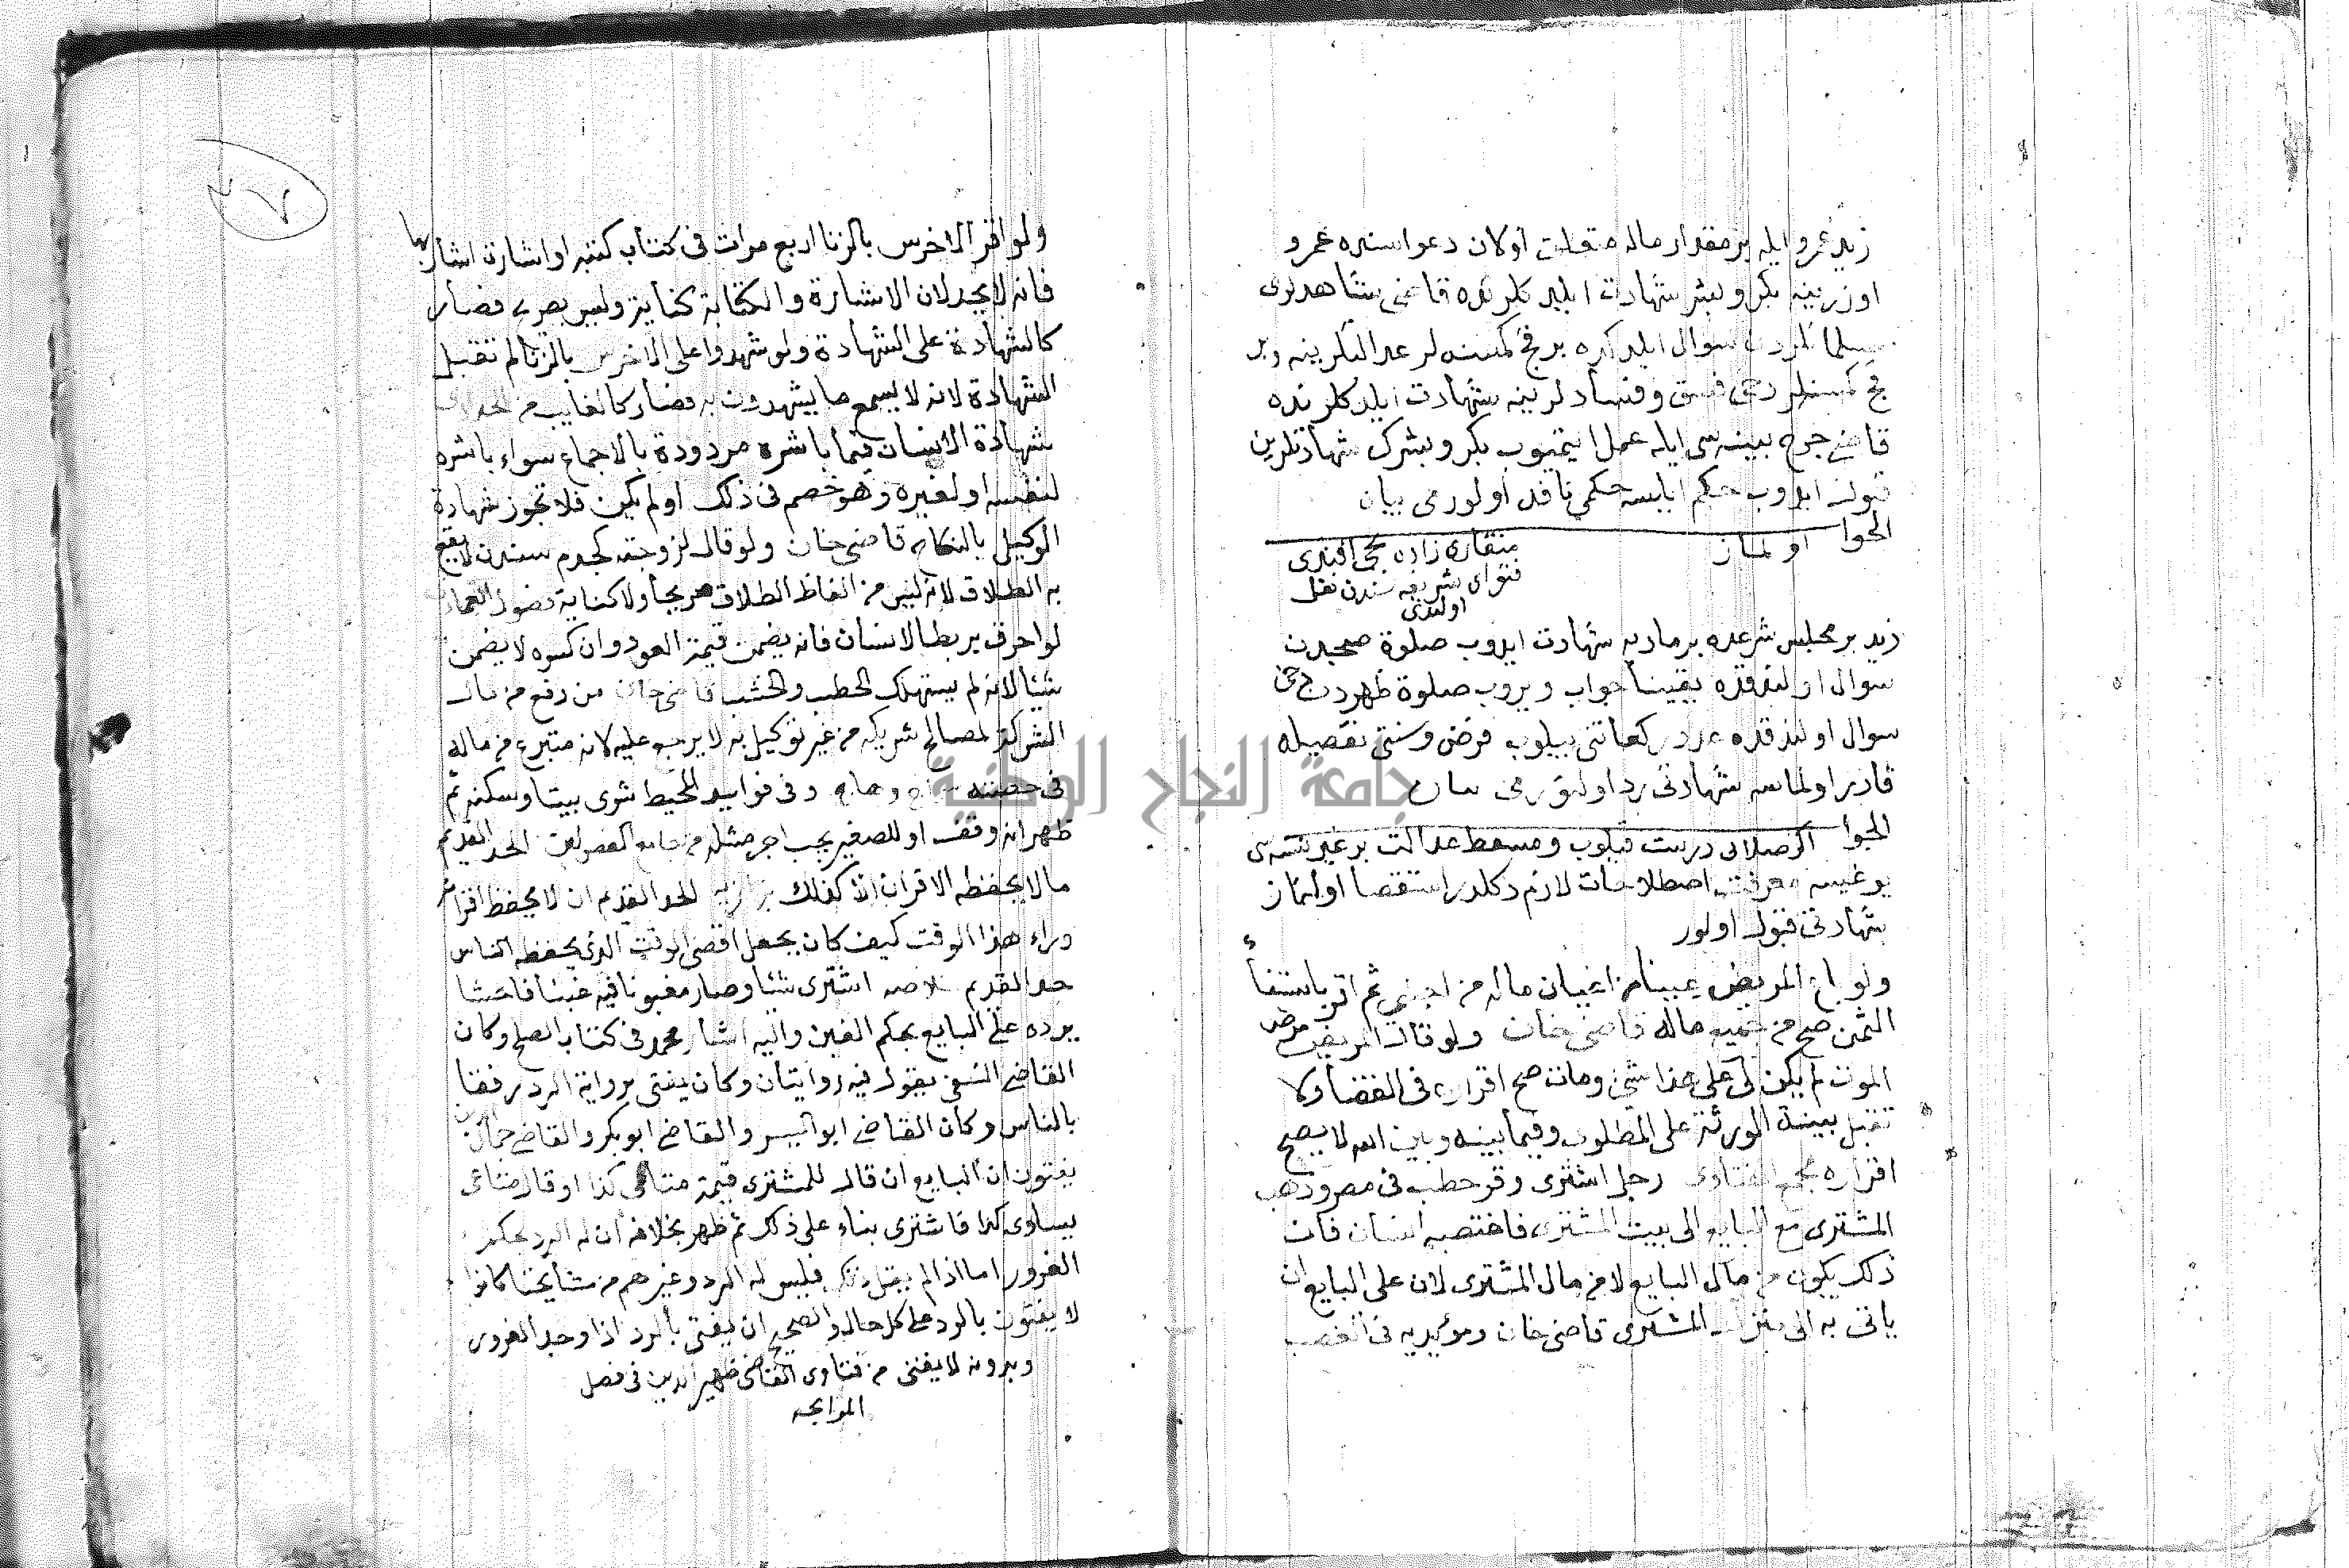 زيد عمرو ايله بر مقدار ماله متعلق اولان دعواسنده عمرو
اوزرينه بكر وبشر شهادت ايلدكلرنده قاضى شاهدلرى
سوال ايلدكده برقچ كمسنه لر عدالتلرينه وبر
قچ كمسنلر دخى فسق وفسادلرينه شهادت ايلدكلرنده
قاضى جرح بينه سى ايله عمل ايتميوب بكر وبشرك شهادتلرين
قبول ايدوب حكم ايلسه حكمى نافذ اولورمى بيان
الجوا اولماز
منقارى زاده يحيى افندى
فتواى شريفه سندن نقل
اولندى
زيد بر مجلس شرعده بر ماديه شهادت ايدوب صلوة صبحدن
سوال اولندقده يقينا جواب ويروب صلوة ظهردن
سوال اولندقده عدد ركعاتنى بيلوب فرض وسنتى تفصيله
قادر اولماسه شهادتى رد اولنورمى بيان
الجوا اكر صلاتى درست قيلوب ومسقط عدالت بر غير نسنه سى
يوغيسه معرفت اصطلاحات لازم دكلدر استقصا اولنماز
شهادتى قبول اولور
ولو باع المريض عينا من اعيان ماله من اجنبى ثم اقر باستيفاء
الثمن صح من جميع ماله قاضى خان ولو قال المريض مرض
الموت لم يكن لى على هذا شئ ومات صح اقراره فى القضا ولا
تقبل بينة الورثة على المطلوب وفيما بينه وبين الله لا يصح
اقراره مجمع الفتاوى رجل اشترى وقر حطب فى مصر وذهب
المشترى مع البايع الى بيت المشترى فاغتصبه انسان فان
ذلك يكون من مال البايع لا من مال المشترى لان على البايع ان
ياتى به الى منزل المشترى قاضى خان ومؤيديه فى الغصب
ولو اقر الاخرس بالزنا اربع مرات فى كتاب كتبه او اشارة اشار بها
فانه لا يحد لان الاشارة والكتابة كناية وليس بصريح فصار
كالشهادة على الشهادة ولو شهدوا على الاخرس بالزنا لم تقبل
الشهادة لانه لا يسمع ما يشهدون به فصار كالغايب من
شهادة الانسان فيما باشره مردودة بالاجماع سواء باشره
لنفسه او لغيره وهو خصم فى ذلك او لم يكن فلا تجوز شهادة
الوكيل بالنكاح قاضى خان ولو قال لزوجته كچدم سندن لا يقع
به الطلاق لانه ليس من الفاظ الطلاق صريحا ولا كناية فصول العماد
لو احرق بربطا لانسان فانه يضمن قيمة العود وان كسره لا يضمن
شيئا لانه لم يستهلك الحطب والخشب قاضى خان من دفع من مال
الشركة لمصالح شريكه من غير توكيل به لا يرجع عليه لانه متبرع من ماله
فى حصته وفى فوايد المحيط شرى بيتا وسكنه ثم
ظهر انه وقف او للصغير يجب اجر مثله من جامع الفصولين الحد القديم
مالا يحفظه الاقران الا كذلك بزازيه الحد القديم ان لا يحفظ اقرانه
وراء هذا الوقت كيف كان يجعل اقصى الوقت الذى يحفظه الناس
حد القديم خلاصه اشترى شئا وصار مغبونا فيه غبنا فاحشا
يرده على البايع بحكم الغبن واليه اشار محمد فى كتاب الصلح وكان
القاضى النسفى يقول فيه روايتان وكان يفتى برواية الرد رفقا
بالناس وكان القاضى ابو اليسر والقاضى ابو بكر والقاضى جمال
يفتون ان البايع ان قال للمشترى قيمة متاعى كذا او قال متاعى
يساوى كذا فاشترى بناء على ذلك ثم ظهر بخلافه ان له الرد بحكم
الغرور اما اذا لم يقل ذلك فليس له الرد وغيرهم من مشايخنا كانوا
لا يفتون بالرد على كل حال والصحيح ان يفتى بالرد اذا وجد الغرور
وبدونه لا يفتى من فتاوى القاضى ظهير الدين فى فصل
المرابحه
جامعة النجاح الوطنية